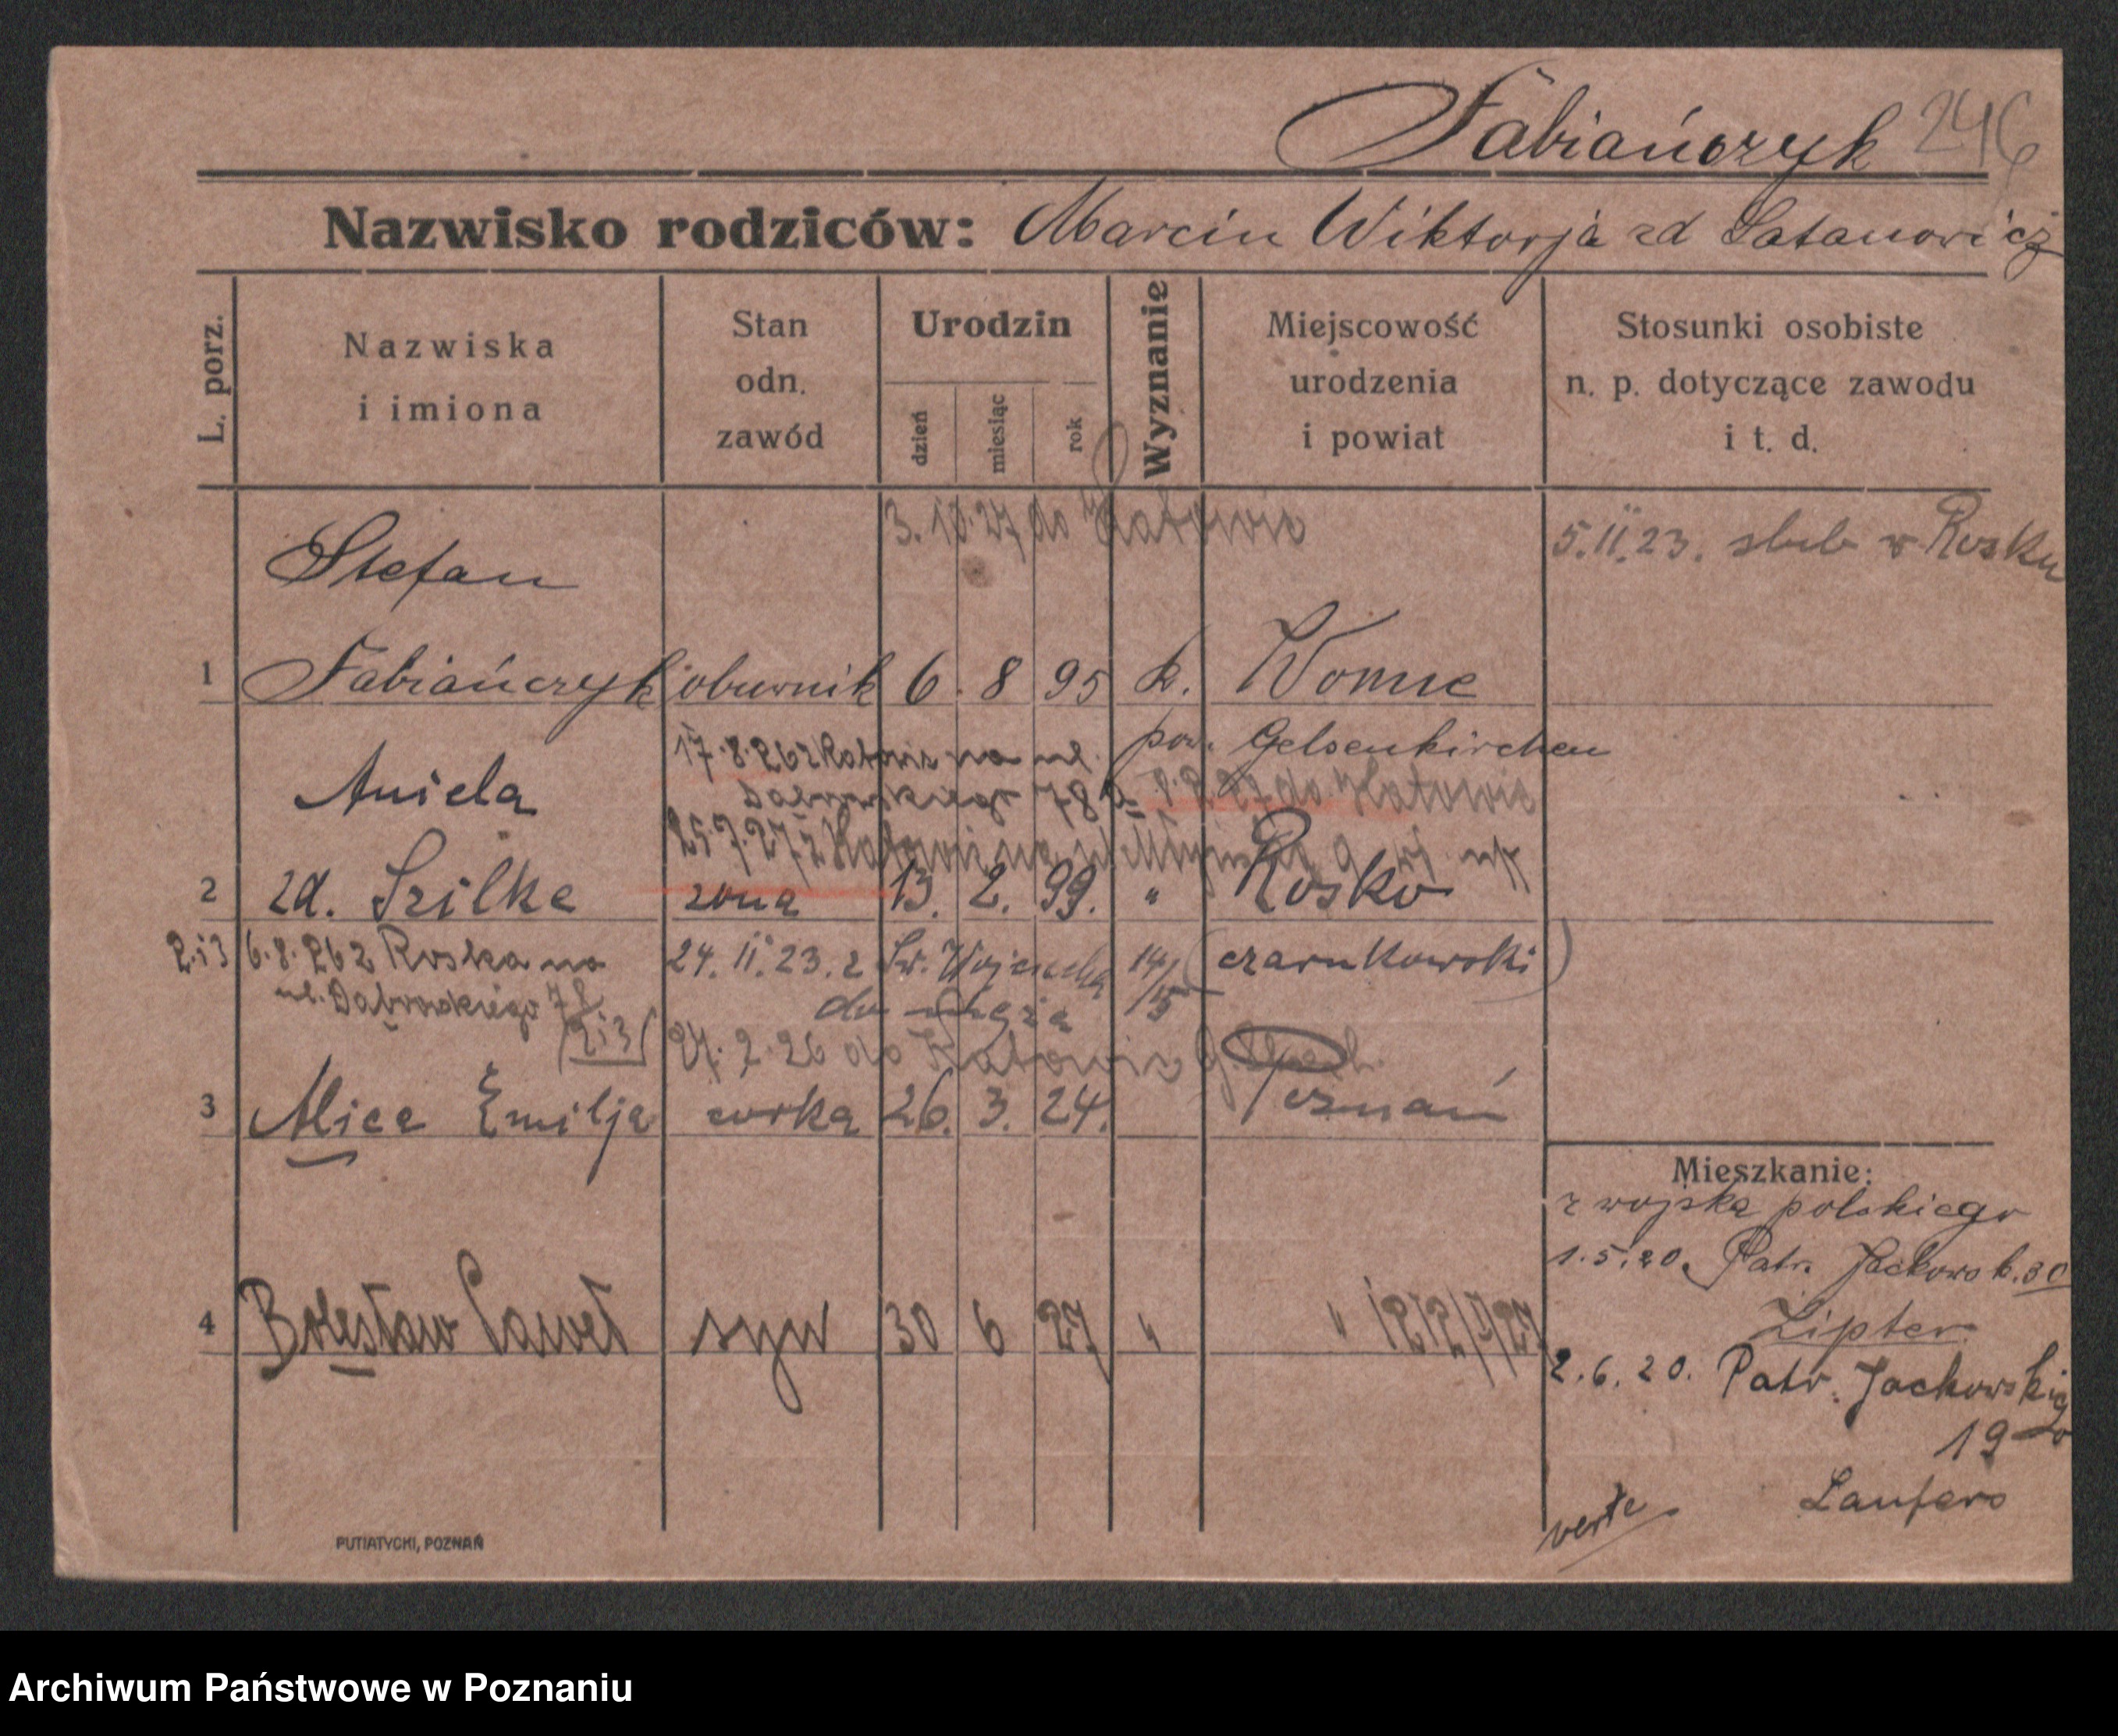 Fabiańczyk 246
Nazwisko rodziców: Marcin Wiktorja zd Satanowicz
L. porz.
Nazwiska
i imiona
Stan
odn.
zawód
Urodzin
dzień
miesiąc
rok
Wyznanie
Miejscowość
urodzenia
i powiat
Stosunki osobiste
n. p. dotyczące zawodu
i t. d.
3. 10. 27 do Katowic
5.II.23. slub w Rosku
Stefan
1 Fabiańczyk obuwnik 6. 8 95 k. Womne
pow. Gelsenkirchen
17.8.26 z Katowic na ul.
Dąbrowskiego 78
27 do Katowic
Aniela
25.7.27 z Katowic na ul
2 zd. Szilke żona 13. 2. 99. " Rosko
(czarnkowski)
2 i 3 6.8.26 z Roska na
ul. Dąbrowskiego 78
(2i3)
24. II. 23. z Św. Wojciecha 14/15
do męża
27. 2. 26 do Katowic
3 Alice Emilja corka 26. 3. 24. Poznań
4 Bolesław Paweł syn 30 6 27 " "
Mieszkanie:
z wojska polskiego
1.5.20. Patr. Jackowsk. 30
Lipter
2.6.20. Patr. Jackowskiego
19
Laufero
verte
PUTIATYCKI, POZNAŃ
Archiwum Państwowe w Poznaniu